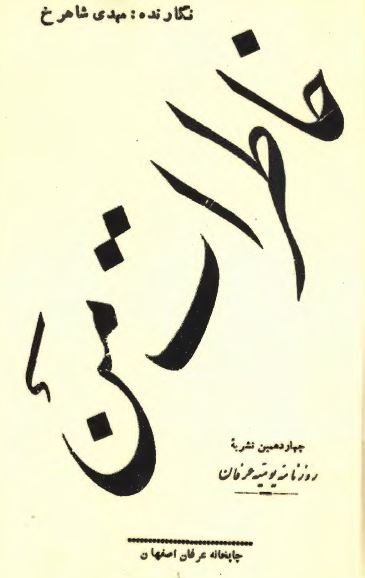 نگارنده: مهدی شاهرخ
خاطرات من
چهاردهمین نشریهٔ
روزنامه یومیه عرفان
چاپخانه عرفان اصفهان